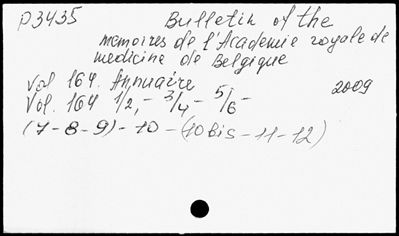 P3435 Bulletin of the
memoires de l'Academie royale de
medicine de Belgique
Vol 164. Annuaire 2009
Vol. 164 1/2, - 3/4 - 5/6 -
(7-8-9) - 10 - (10 Bis - 11 - 12)